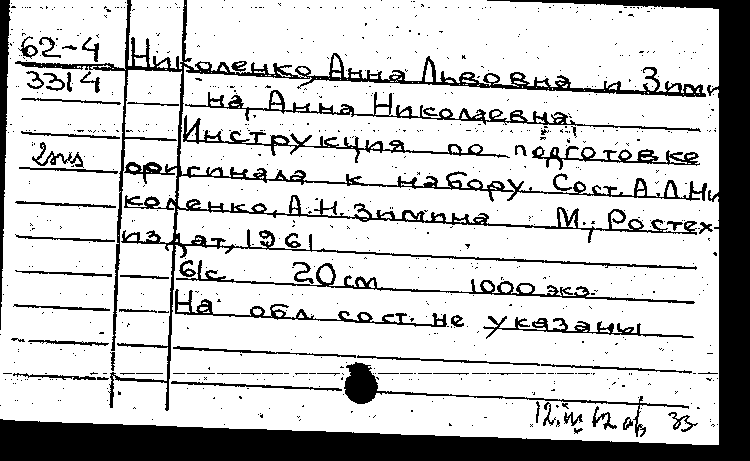 62-4 Николенко, Анна Львовна и Зими
3314
на, Анна Николаевна.
Инструкция по подготовке
2экз оригинала к набору. Сост. А.Л.Ни
коленко, А.Н.Зимина М., Ростех-
издат, 1961
61с 20 см 1000 экз.
На обл. сост. не указаны
33